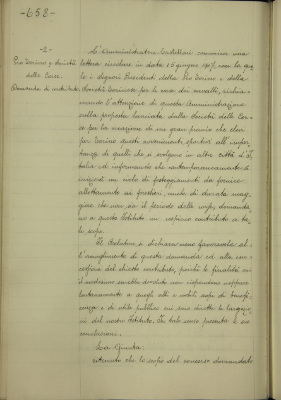 -658-
-2-
Pro Torino e Società
delle Corse.
Domanda di contributo
L'Amministratore Castellani comunica una
lettera circolare in data 15 giugno 1907, con la qua
le i Signori Presidenti della Pro Torino e della
Società Torinese per le corse dei cavalli, richia-
mando l'attenzione di questa Amministrazione
sulla proposta lanciata dalla Società delle Cor-
se per la creazione di un gran premio che elevi
per Torino questi avvenimenti sportivi all'impor-
tanza di quelli che si svolgono in altre città d'I-
talia ed informando che contemporaneamente si
di festeggiamenti da fornire
allettamento ai forestieri, anche di durata mag-
giore che non sia il periodo delle corse, domanda-
no a questo Istituto un cospicuo contributo a ta-
le scopo.
Il Relatore si dichiara non favorevole al-
l'accoglimento di questa domanda ed alla con-
cessione del chiesto contributo, perché le finalità cui
il medesimo sarebbe devoluto non rispondono neppure
lontanamente a quegli alti e nobili scopi di benefi-
cenza e di utile pubblico cui sono dirette le largizio-
ni del nostro Istituto. In tal senso presenta le sue
conclusioni.
La Giunta,
ritenuto che lo scopo del concorso domandato